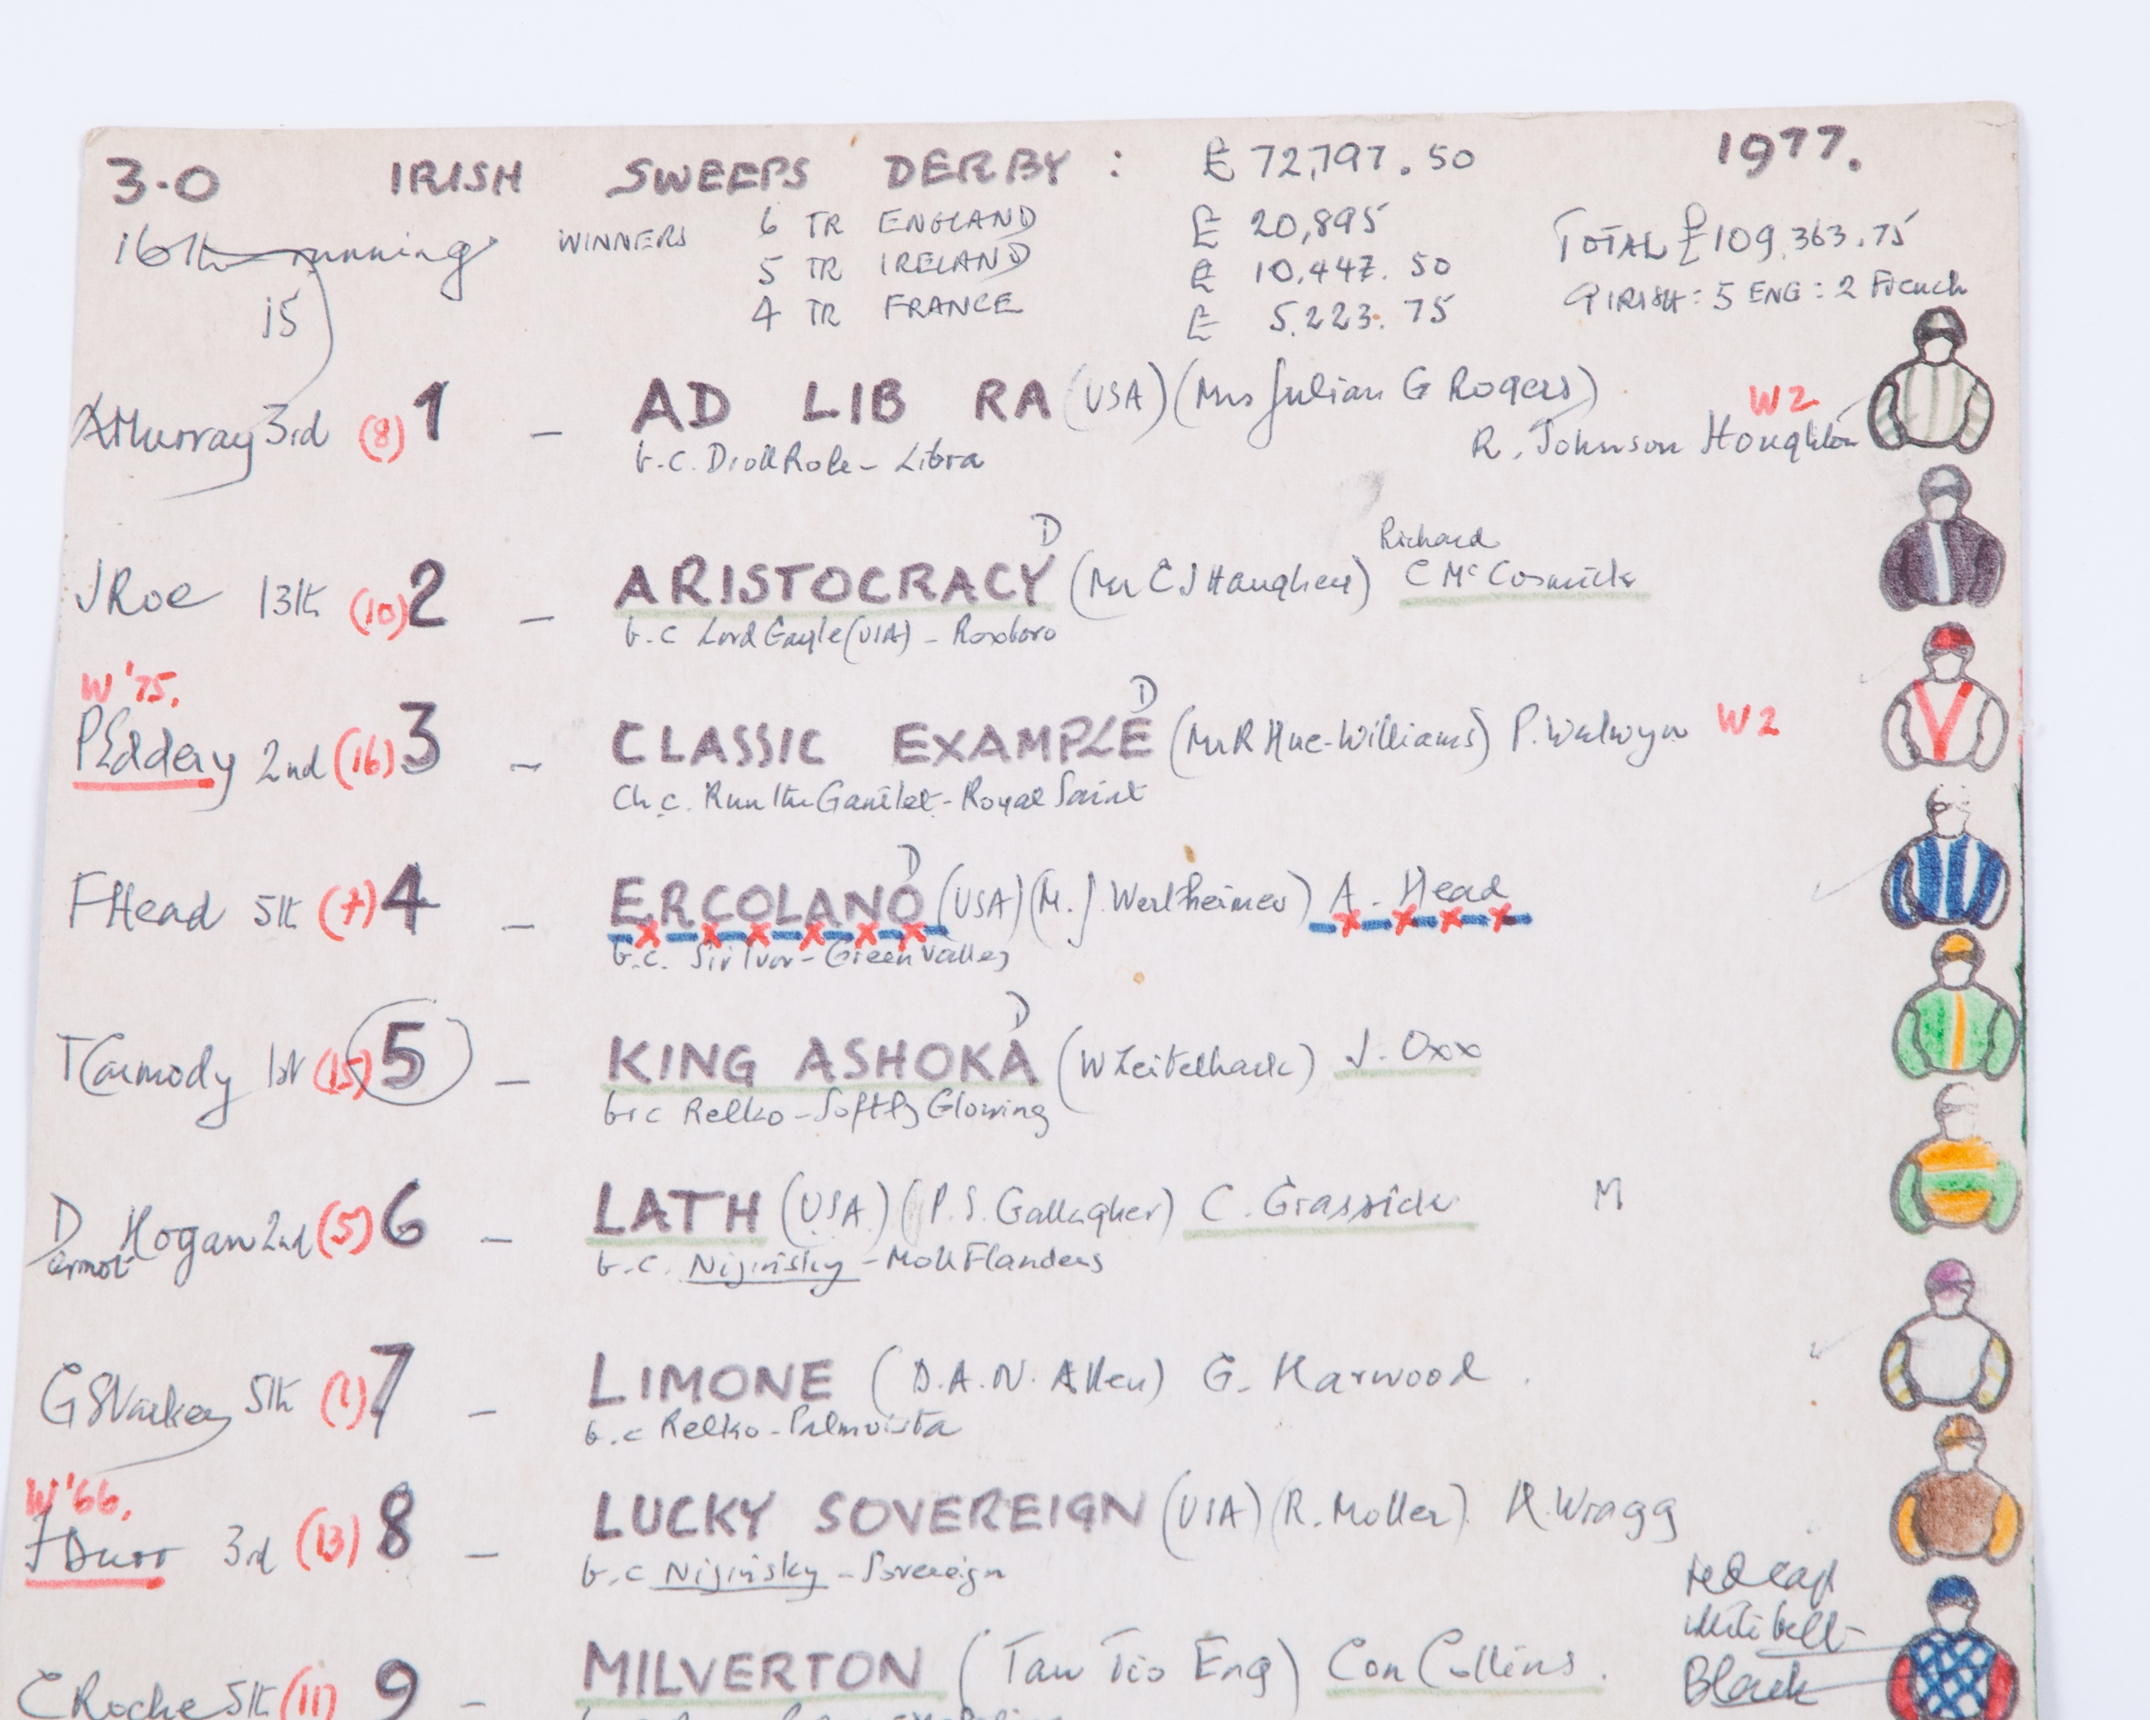 3.0 IRISH SWEEPS DERBY : £ 72,797.50 1977.
16th running WINNERS 6 TR ENGLAND £ 20,895 TOTAL £109,363.75
5 TR IRELAND £ 10,447.50 9 IRISH : 5 ENG : 2 French
15 4 TR FRANCE £ 5,223.75
W2
A Murray 3rd (8) 1 – AD LIB RA (USA) (Mrs Julian G Rogers)
R. Johnson Houghton
b.c. Droll Role – Libra
D Richard
J Roe 13th (10) 2 – ARISTOCRACY (Mr C J Haughey) C McCormick
b.c Lord Gayle (USA) – Roxboro
W '75. D
P Eddery 2nd (16) 3 – CLASSIC EXAMPLE (Mr R Hue-Williams) P. Walwyn W2
Ch c. Run the Gantlet – Royal Saint
D
F Head 5th (7) 4 – ERCOLANO (USA) (M. J. Wertheimer) A. Head
b.c. Sir Ivor – Green Valley
D
T Carmody 1st (15) 5 – KING ASHOKA (W Zeitelhack) J. Oxx
br c Relko – Softly Glowing
Dermot Hogan 2nd (5) 6 – LATH (USA) (P.S. Gallagher) C. Grassick M
b.c. Nijinsky – Moll Flanders
G Starkey 5th (1) 7 – LIMONE (D.A.N. Allen) G. Harwood.
b.c Relko – Palmavista
W '66.
F Durr 3rd (13) 8 – LUCKY SOVEREIGN (USA) (R. Moller) H. Wragg
b.c Nijinsky – Sovereign
red cap
white belt
C Roche 5th (11) 9 – MILVERTON (Taw Tio Eng) Con Collins.
Black